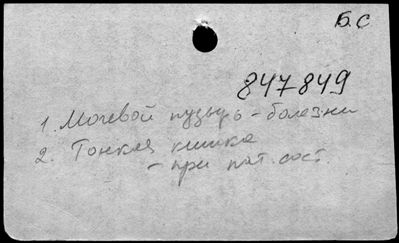 Б.С
847849
1. Мочевой пузырь - болезни
2. Тонкая кишка
- при пат. сост.